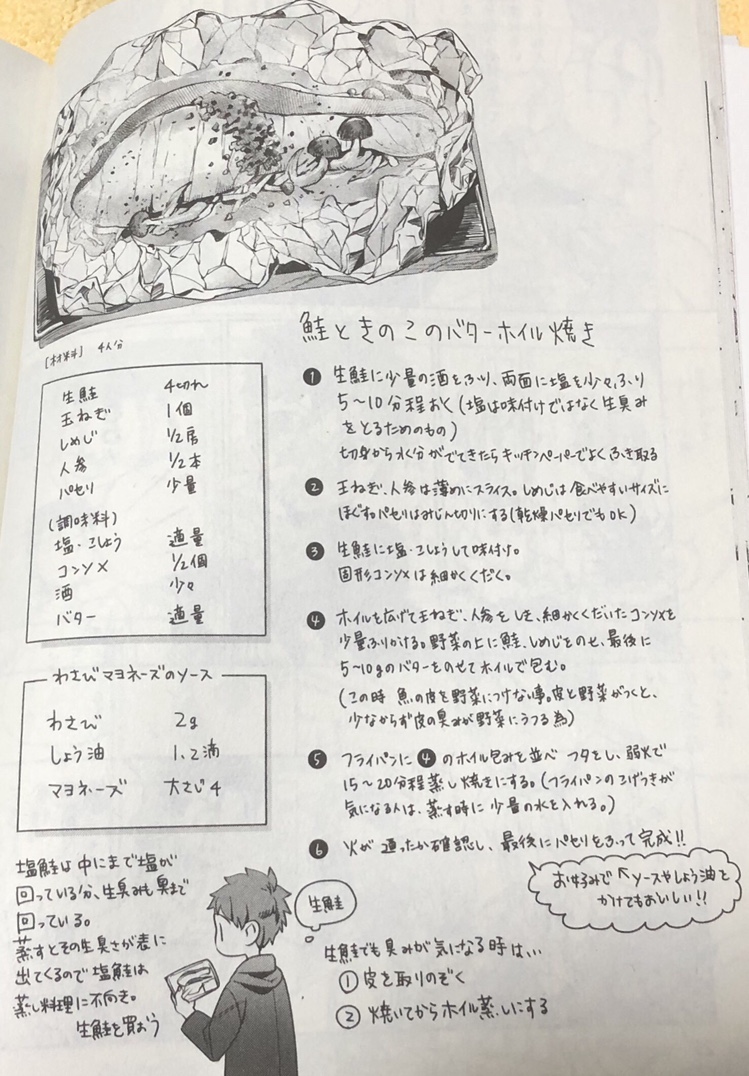 鮭ときのこのバターホイル焼き
[材料] 4人分
生鮭 4切れ
玉ねぎ 1個
しめじ 1/2房
人参 1/2本
パセリ 少量
(調味料)
塩・こしょう 適量
コンソメ 1/2個
酒 少々
バター 適量
わさびマヨネーズのソース
わさび 2g
しょう油 1、2滴
マヨネーズ 大さじ4
❶ 生鮭に少量の酒をふり、両面に塩を少々ふり
5〜10分程おく(塩は味付けではなく生臭み
をとるためのもの)
切身から水分がでてきたらキッチンペーパーでよくふき取る
❷ 玉ねぎ、人参は薄めにスライス。しめじは食べやすいサイズに
ほぐす。パセリはみじん切りにする(乾燥パセリでもOK)
❸ 生鮭に塩・こしょうして味付け。
固形コンソメは細かくくだく。
❹ ホイルを広げて玉ねぎ、人参をしき、細かくくだいたコンソメを
少量ふりかける。野菜の上に鮭、しめじをのせ、最後に
5〜10gのバターをのせてホイルで包む。
(この時 魚の皮を野菜につけない事。皮と野菜がつくと、
少なからず皮の臭みが野菜にうつる為)
❺ フライパンに❹のホイル包みを並べ フタをし、弱火で
15〜20分程蒸し焼きにする。(フライパンのこげつきが
気になる人は、蒸す時に少量の水を入れる。)
❻ 火が通ったか確認し、最後にパセリをふって完成!!
お好みで↖ソースやしょう油を
かけてもおいしい!!
塩鮭は中にまで塩が
回っている分、生臭みも奥まで
回っている。
蒸すとその生臭さが表に
出てくるので塩鮭は
蒸し料理に不向き。
生鮭を買おう
生鮭
生鮭でも臭みが気になる時は、、、
① 皮を取りのぞく
② 焼いてからホイル蒸しにする